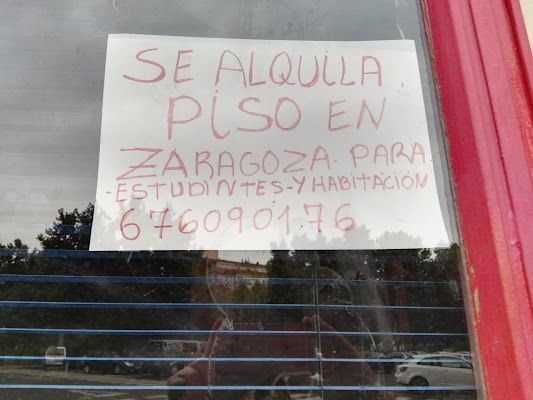 SE ALQUILA
PISO EN
ZARAGOZA. PARA
-ESTUDINTES-Y HABITACIÓN
676090176